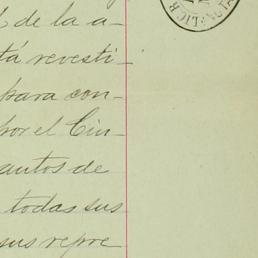 de la a-
tá revesti-
para con-
por el Cin-
autos de
todas sus
sus repre